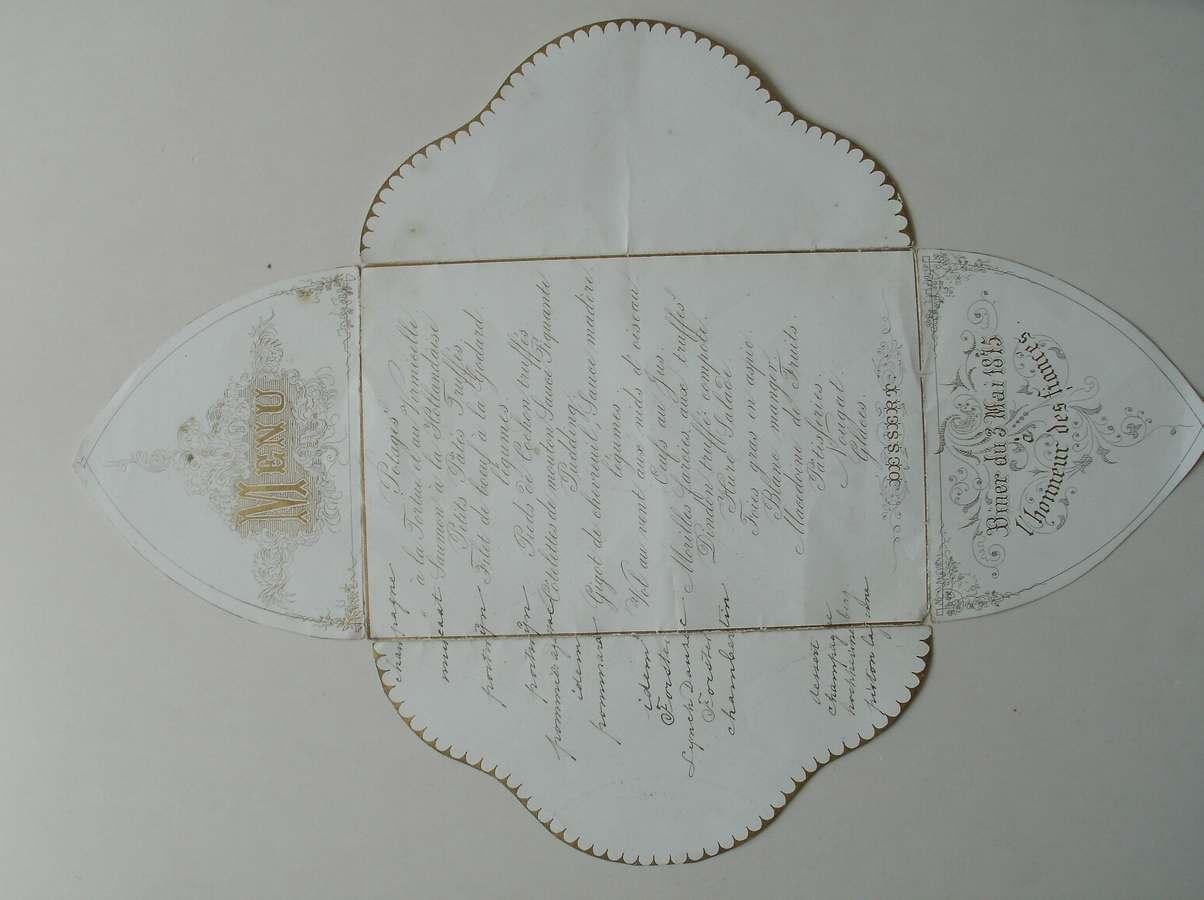 MENU
Potages
à la Tortue et au Vermicelle
Saumon à la Hollandaise
Petits Pâtés Truffés
Filet de bœuf à la Godard
légumes
Pieds de Cochon truffés
Côtelettes de mouton Sauce Piquante
Pudding
Gigot de chevreuil, Sauce madère
légumes
Vol au vent aux nids d'oiseau
Œufs au Jus.
Morilles farcies aux truffes
Dindon truffé compote.
Hure Salade
Foies gras en aspic.
Blanc manger
Macédoine de Fruits.
Pâtisseries.
Nougat.
Glaces.
DESSERT
Diner du 3 Mai 1875
à
l'honneur des fiancés
champagne
muscat
portwijn
portwijn
idem
pommard
idem
Forster
Forster
chambertin
dessert
champagne